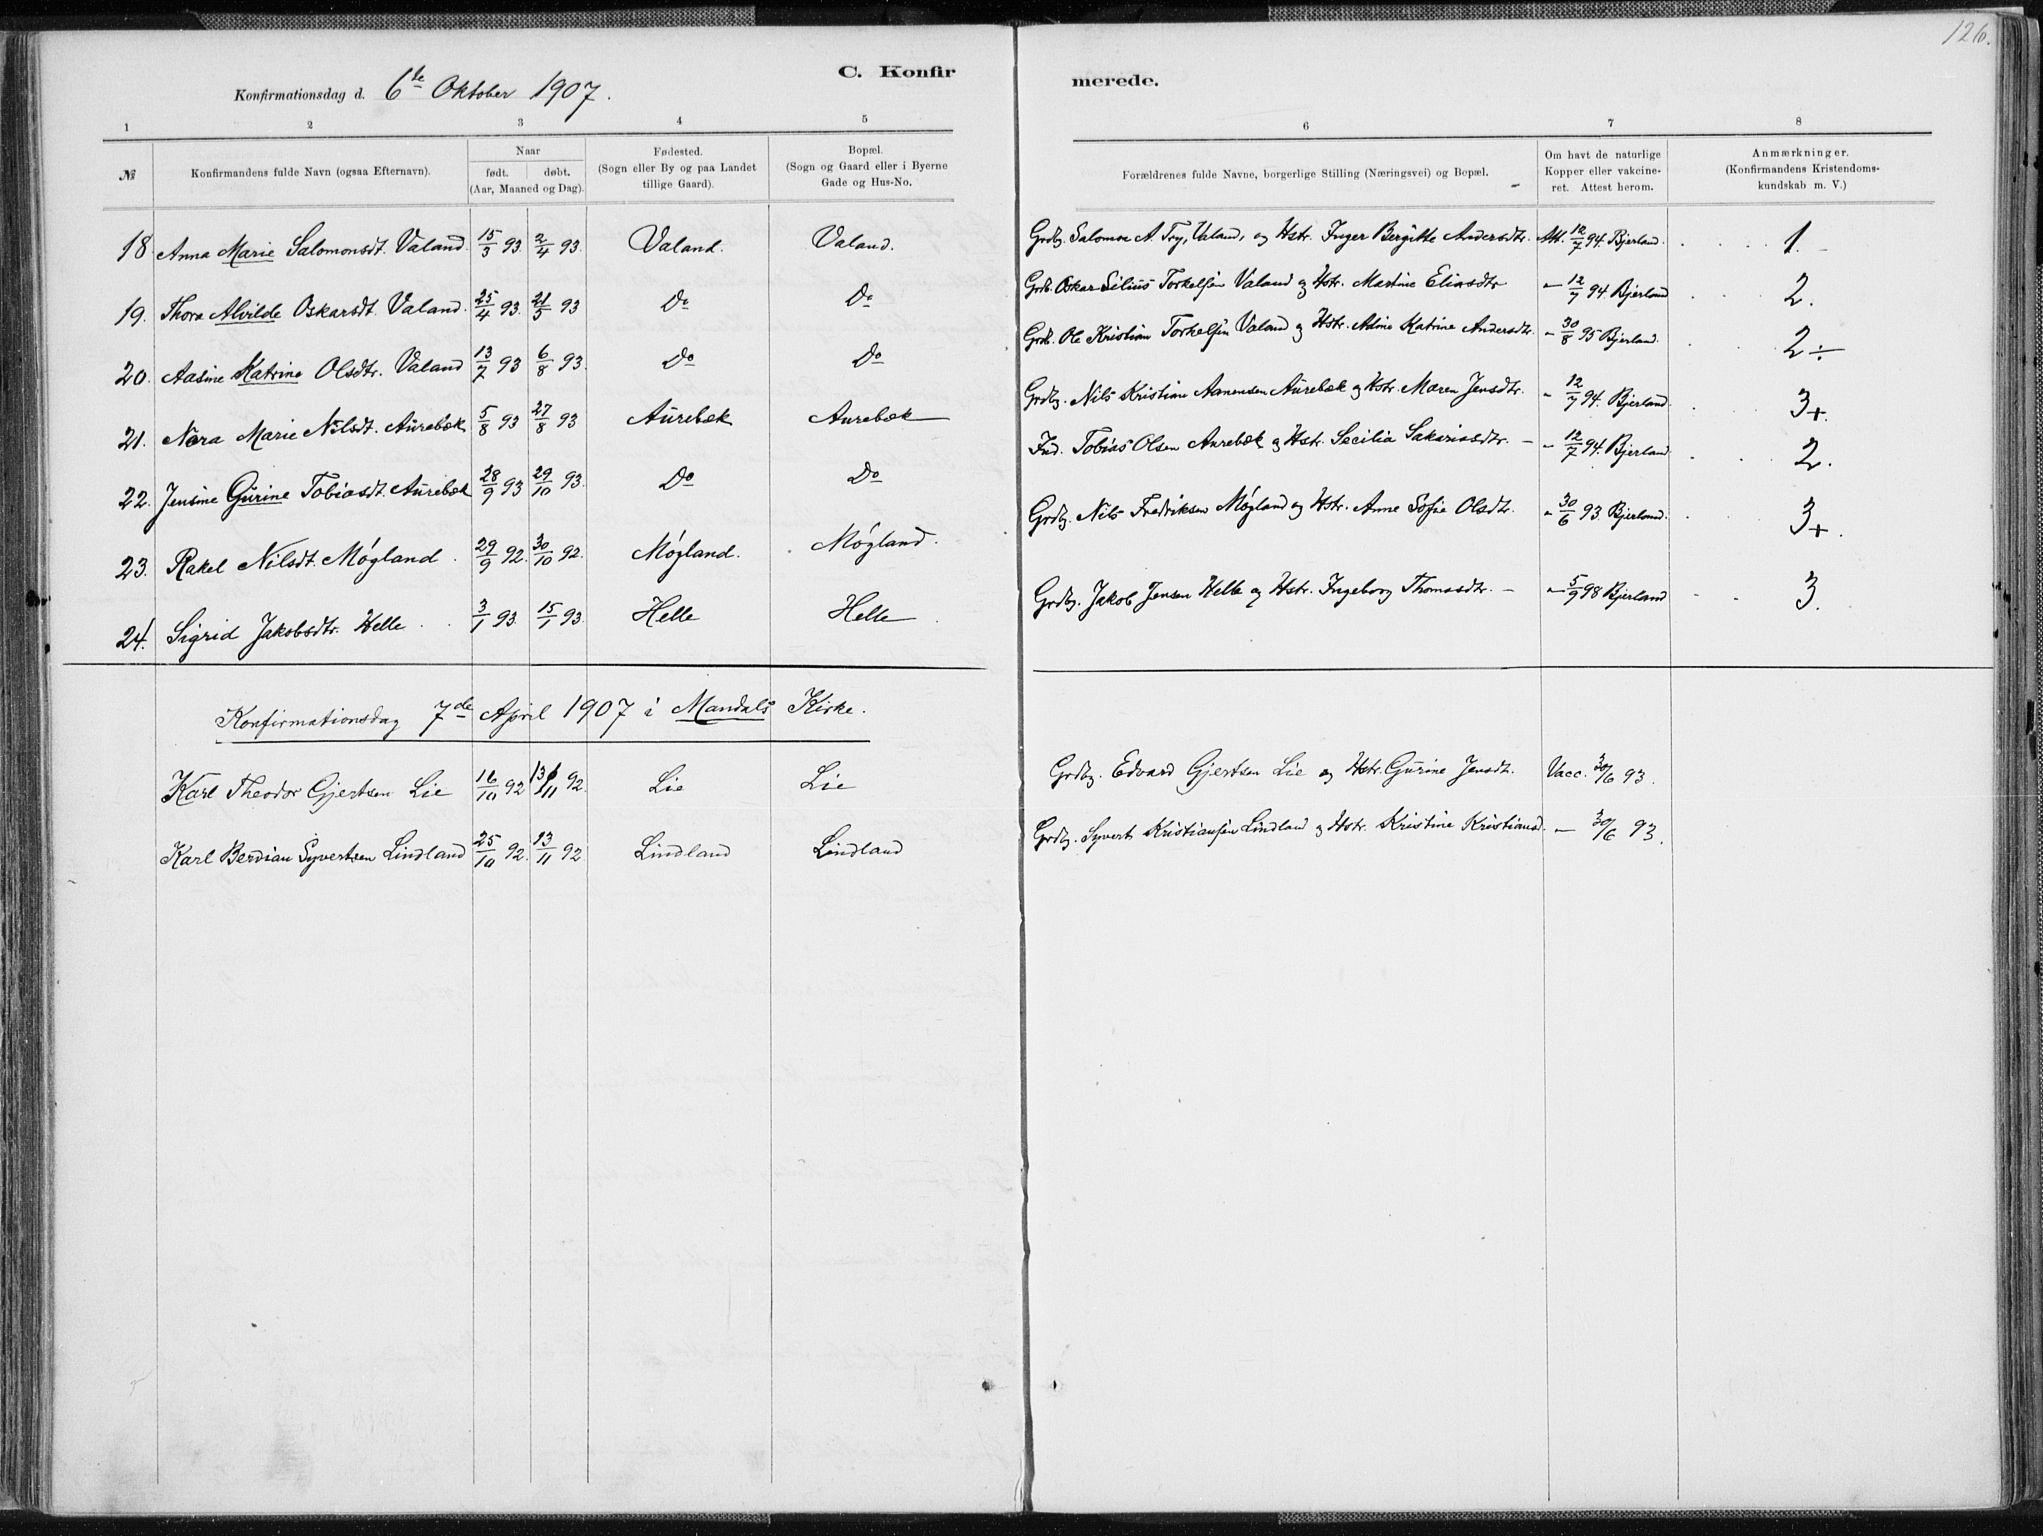 126.
C. Konfirmerede.
Konfirmationsdag d. 6te Oktober 1907.
1 2 3 4 5 6 7 8
№ Konfirmandens fulde Navn (ogsaa Efternavn). Naar født. døbt. (Aar, Maaned og Dag). Fødested. (Sogn eller By og paa Landet tillige Gaard). Bopæl. (Sogn og Gaard eller i Byerne Gade og Hus-No. Forældrenes fulde Navne, borgerlige Stilling (Næringsvei) og Bopæl. Om havt de naturlige Kopper eller vakcineret. Attest herom. Anmærkninger. (Konfirmandens Kristendomskundskab m. V.)
18. Anna Marie Salomonsdt. Valand. 15/3 93. 2/4 93. Valand. Valand. Grdbg. Salomon A. Try, Valand, og Hstr. Inger Bergitte Andersdtr. Att. 12/7 94. Bjerland. 1.
19. Thora Alvilde Oskarsdt. Valand. 25/4 93. 21/5 93 Do Do Grdb. Oskar Silius Torkelsen Valand og Hstr. Martine Eliasdtr - 12/7 94. Bjerland 2.
20. Aasine Katrine Olsdtr. Valand 13/7 93 6/8 93. Do Do Grdb. Ole Kristian Torkelsen Valand og Hstr. Adine Katrine Andersdtr. - 30/8 95 Bjerland. 2÷
21. Nora Marie Nilsdt. Aurebæk 5/8 93 27/8 93 Aurebæk Aurebæk Grdbg. Nils Kristian Aanensen Aurebæk og Hstr. Maren Jensdtr. - 12/7 94. Bjerland. 3+.
22. Jensine Gurine Tobiasdt. Aurebæk 28/9 93 29/10 93. Do Do Ind. Tobias Olsen Aurebæk og Hstr. Secilia Sakariasdtr. - - 12/7 94. Bjerland 2.
23. Rakel Nilsdt. Møgland. 29/9 92. 30/10 92. Møgland. Møgland. Grdbg. Nils Fredriksen Møgland og Hstr. Anne Sofie Olsdtr. - 30/6 93 Bjerland. 3+.
24. Sigrid Jakobsdtr. Helle 3/1 93. 15/1 93. Helle Helle Grdbg. Jakob Jensen Helle og Hstr. Ingeborg Thomasdtr. - - 5/9 98 Bjerland 3.
Konfirmationsdag 7de April 1907 i Mandals Kirke.
Karl Theodor Gjertsen Lie 16/10 92 13/11 92. Lie Lie Grdbg. Edvard Gjertsen Lie og Hstr. Gurine Jensdt. Vacc. 30/6 93.
Karl Berdian Syvertsen Lindland 25/10 92. 13/11 92 Lindland Lindland Grdbg. Syvert Kristiansen Lindland og Hstr. Kristine Kristiansd. - 30/6 93.